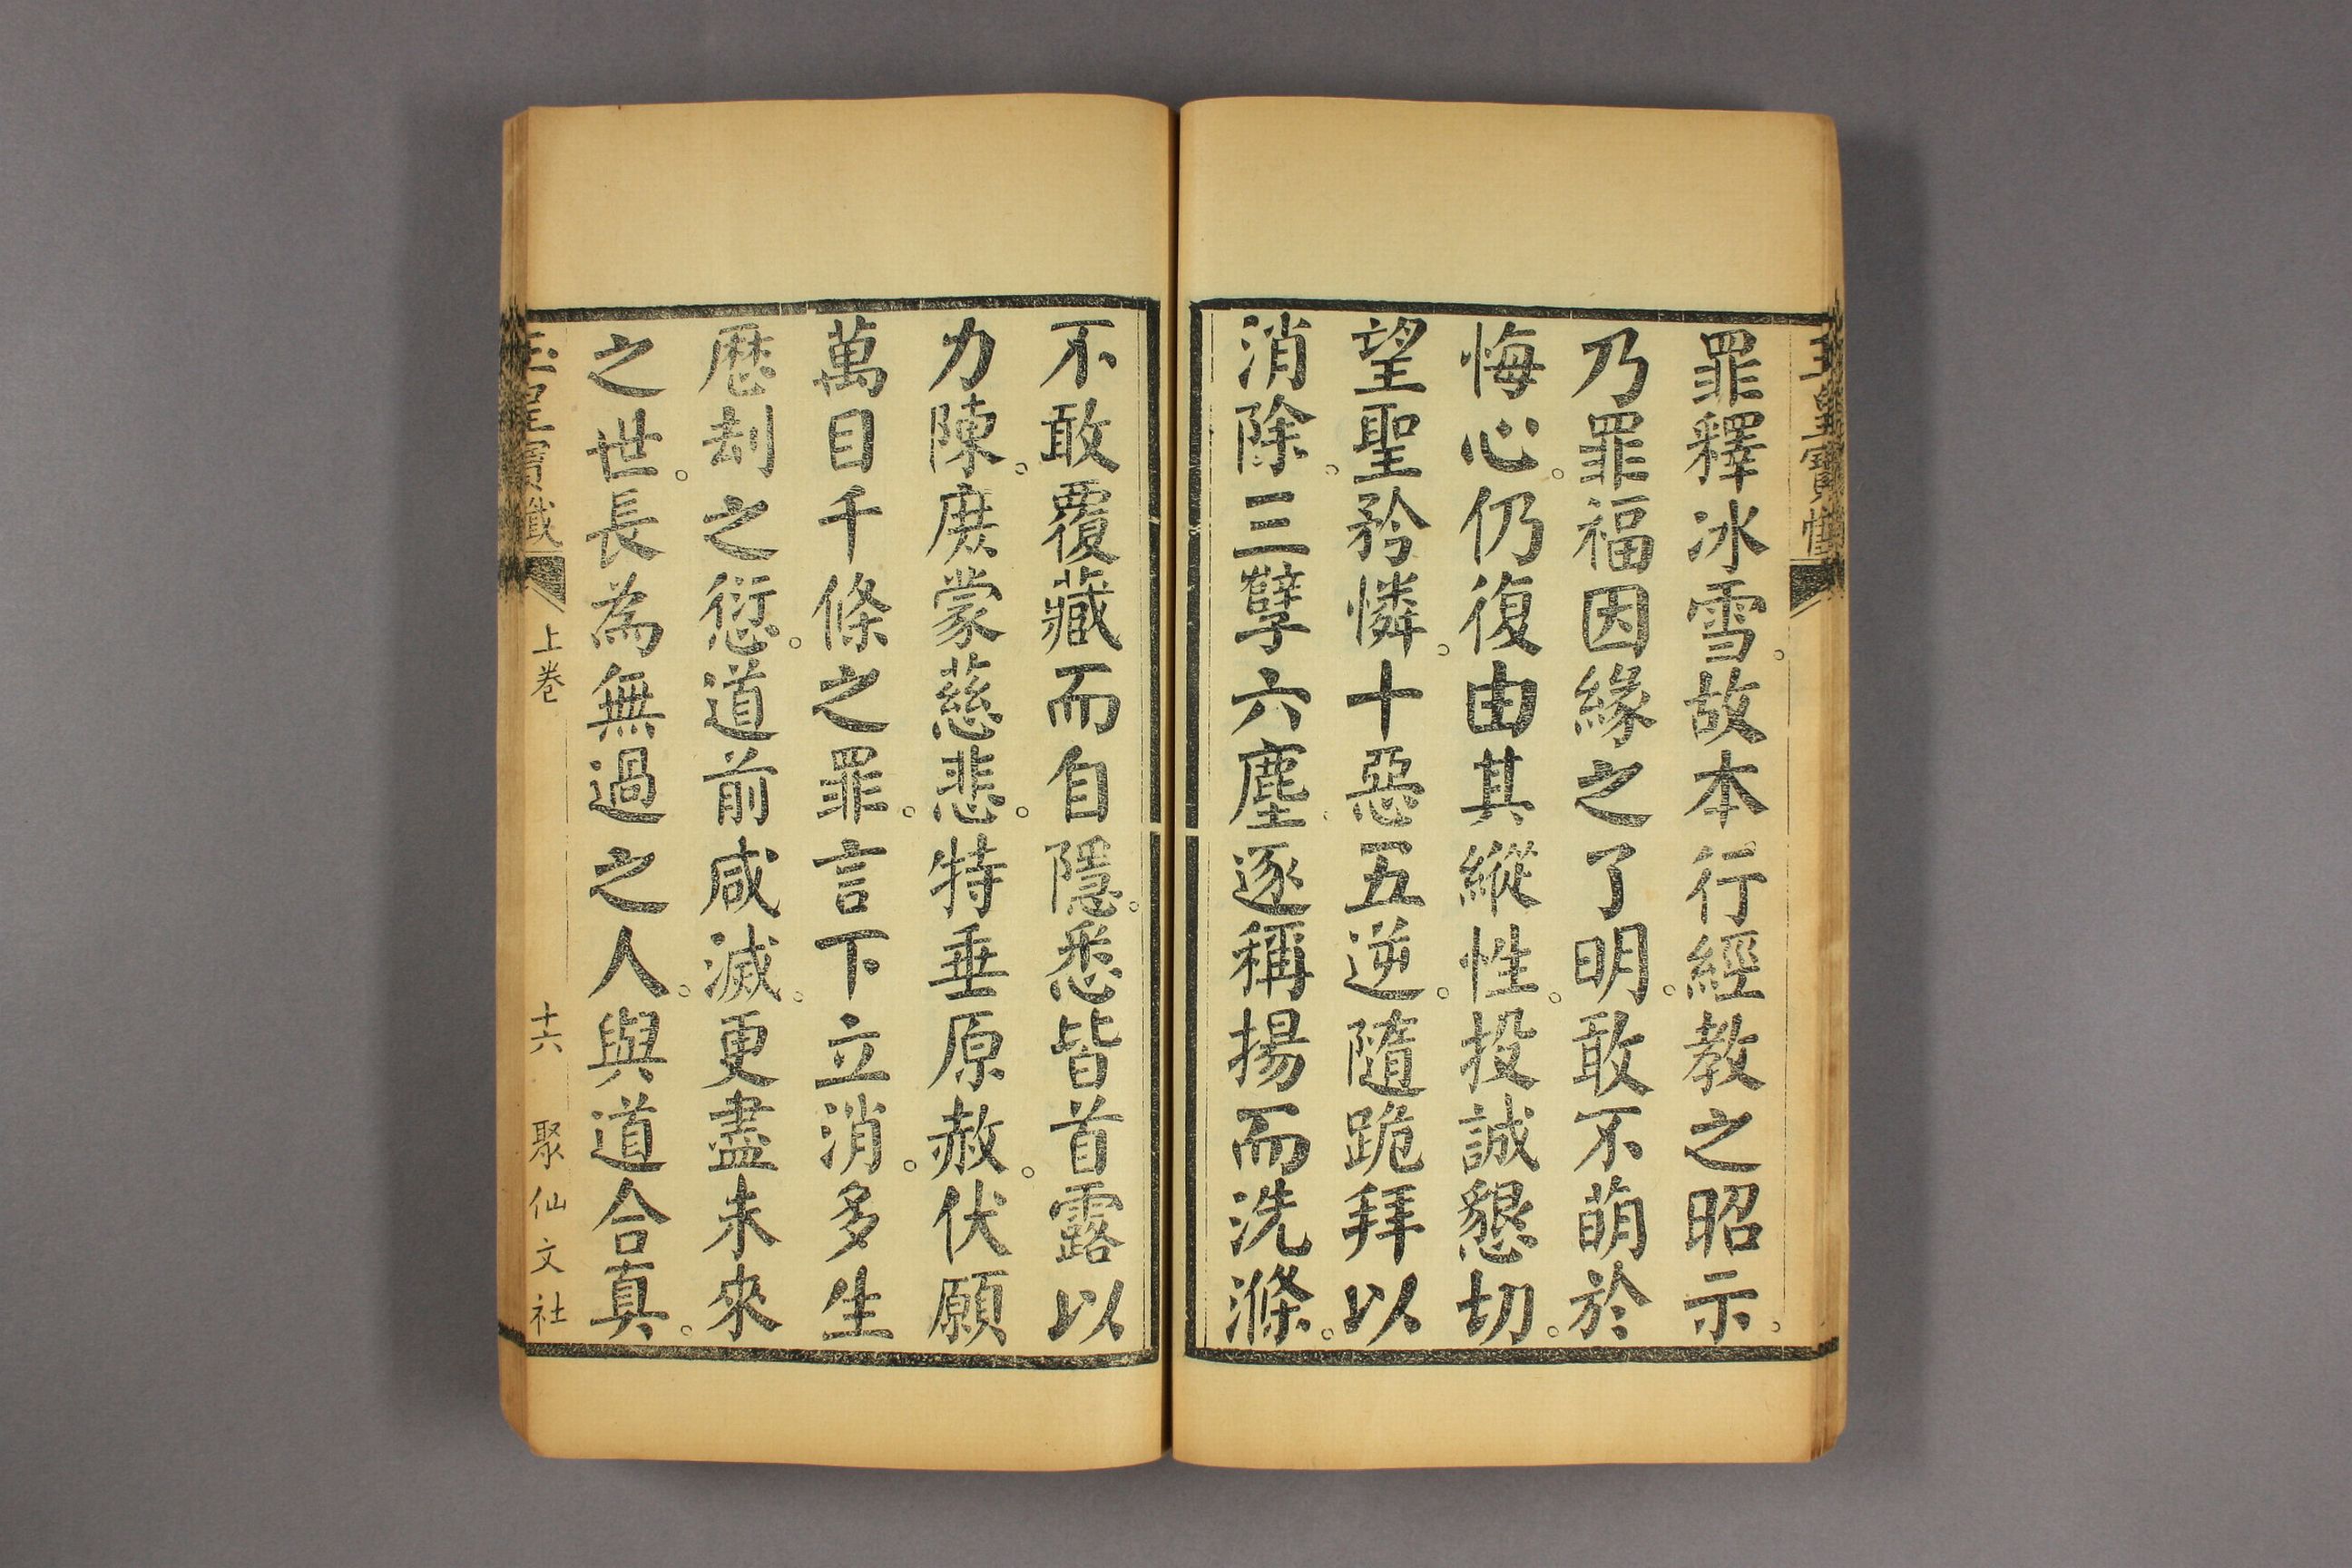 玉皇寶懺
罪釋冰雪。故本行經教之昭示。
乃罪福因緣之了明。敢不萌於
悔心。仍復由其縱性。投誠懇切。
望聖矜憐。十惡五逆。隨跪拜以
消除。三孽六塵。逐稱揚而洗滌。
不敢覆藏而自隱。悉皆首露以
力陳。庶蒙慈悲。特垂原赦。伏願
萬目千條之罪。言下立消。多生
歷刧之愆。道前咸滅。更盡未來
之世。長為無過之人。與道合真。
玉皇寶懺 上卷 十六 聚仙文社